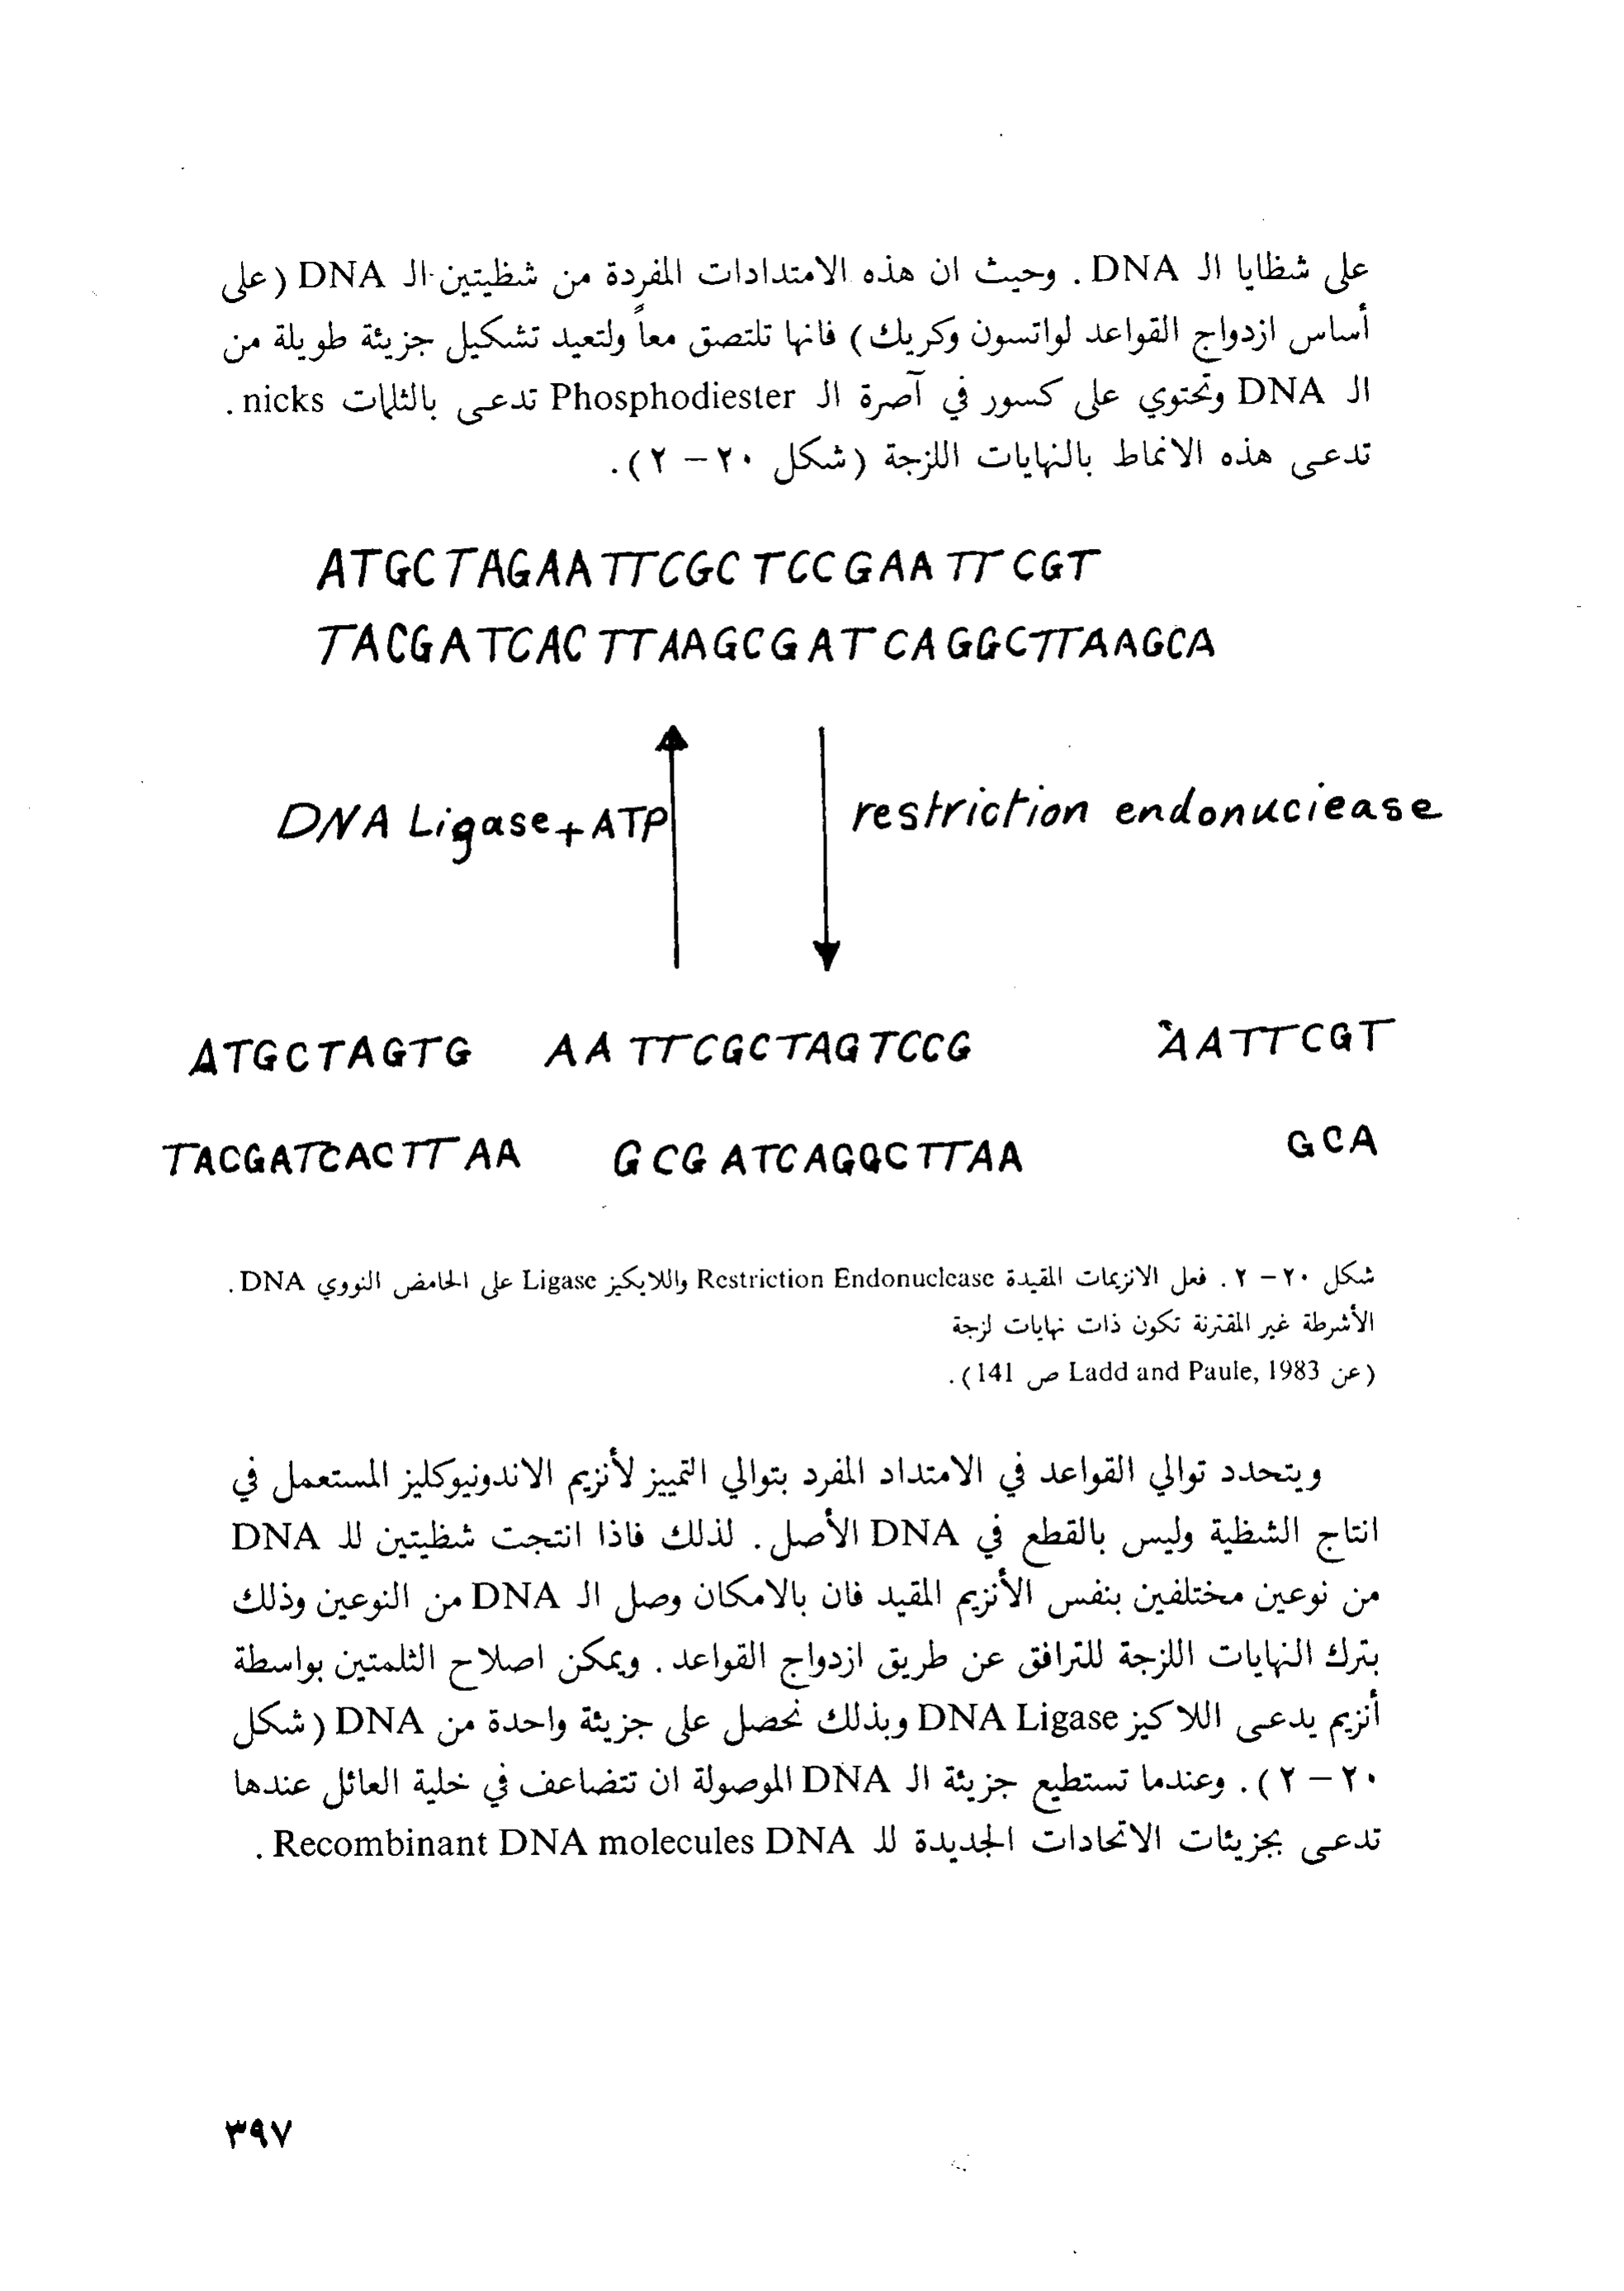 على شظايا ال DNA . وحيث ان هذه الامتدادات المفردة من شظيتين ال DNA (على
أساس ازدواج القواعد لواتسون وكريك) فانها تلتصق معاً ولتعيد تشكيل جزيئة طويلة من
ال DNA وتحتوي على كسور في آصرة ال Phosphodiester تدعى بالثلمات nicks .
تدعى هذه الانماط بالنهايات اللزجة (شكل ٢٠ – ٢).
ATGCTAGAATTCGCTCCGAATTCGT
TACGATCACTTAAGCGATCAGGCTTAAGCA
DNA Ligase+ATP
restriction endonuciease
ATGCTAGTG AATTCGCTAGTCCG AATTCGT
TACGATCACTTAA GCGATCAGGCTTAA GCA
شكل ٢٠ – ٢ . فعل الانزيمات المقيدة Restriction Endonuclease واللايكيز Ligase على الحامض النووي DNA .
الأشرطة غير المقترنة تكون ذات نهايات لزجة
(عن Ladd and Paule, 1983 ص 141).
ويتحدد توالي القواعد في الامتداد المفرد بتوالي التمييز لأنزيم الاندونيوكليز المستعمل في
انتاج الشظية وليس بالقطع في DNA الأصل . لذلك فاذا انتجت شظيتين لل DNA
من نوعين مختلفين بنفس الأنزيم المقيد فان بالامكان وصل ال DNA من النوعين وذلك
بترك النهايات اللزجة للترافق عن طريق ازدواج القواعد . ويمكن اصلاح الثلمتين بواسطة
أنزيم يدعى اللاكيز DNA Ligase وبذلك نحصل على جزيئة واحدة من DNA (شكل
٢٠ – ٢). وعندما تستطيع جزيئة ال DNA الموصولة ان تتضاعف في خلية العائل عندها
تدعى بجزيئات الاتحادات الجديدة لل Recombinant DNA molecules DNA .
٣٩٧